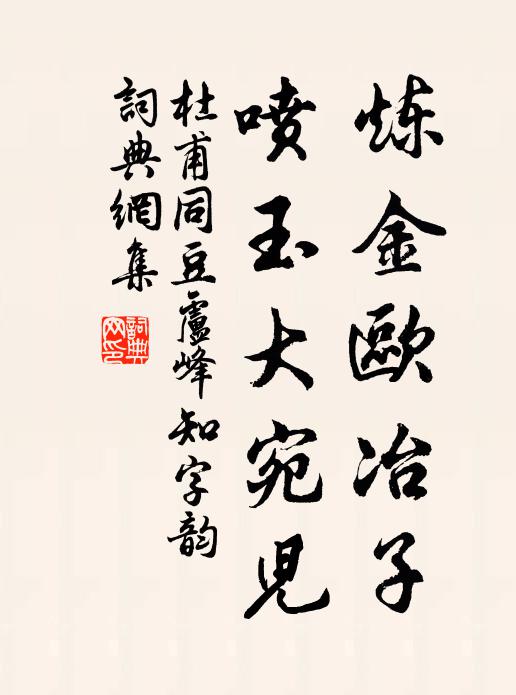 炼金歐冶子
喷玉大宛児
杜甫同豆盧峰知字韵
詞典網集
詞典
网印